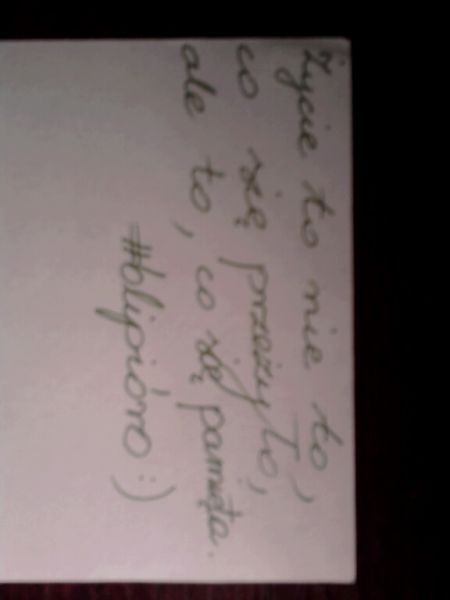 Życie to nie to,
co się przeżyło,
ale to, co się pamięta.
#blipióro :)